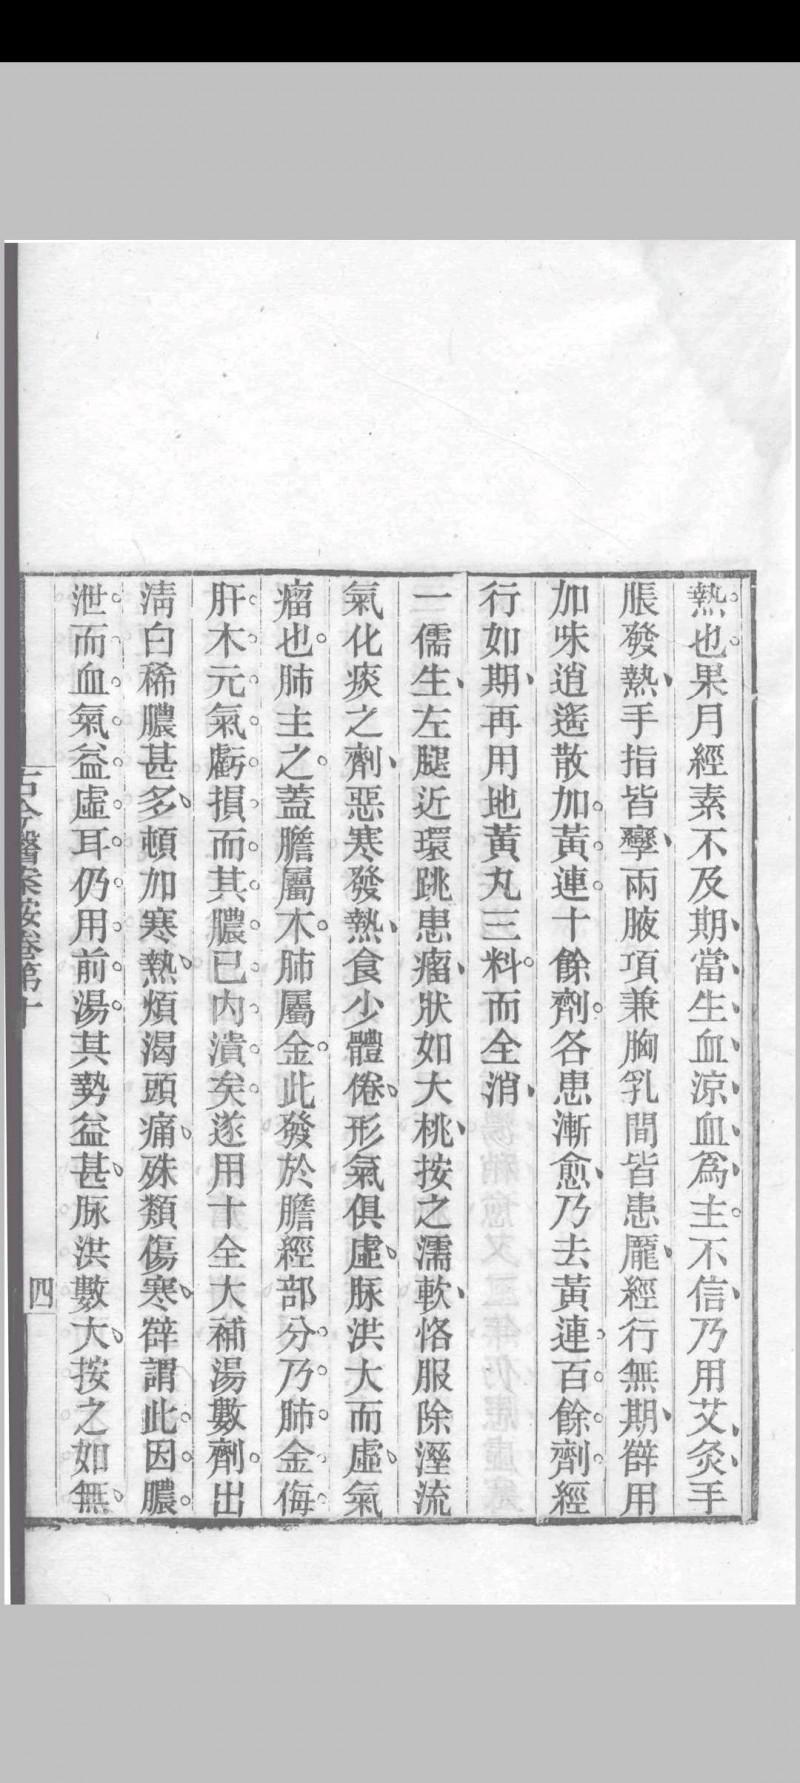 熱也果月經素不及期當生血涼血爲主不信乃用艾灸手
脹發熱手指皆攣兩腋項兼胸乳間皆患瘧經行無期薛用
加味逍遙散加黃連十餘劑各患漸愈乃去黃連百餘劑經
行如期再用地黃丸三料而全消
一儒生左腿近環跳患瘤狀如大桃按之濡軟恪服除溼流
氣化痰之劑惡寒發熱食少體倦形氣俱虛脈洪大而虛氣
瘤也肺主之蓋膽屬木肺屬金此發於膽經部分乃肺金侮
肝木元氣虧損而其膿已內潰矣遂用十全大補湯數劑出
淸白稀膿甚多頓加寒熱煩渴頭痛殊類傷寒薛謂此因膿
泄而血氣益虛耳仍用前湯其勢益甚脈洪數大按之如無
古今醫案按卷第十
四